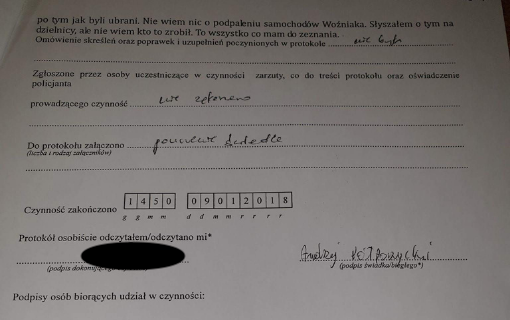 po tym jak byli ubrani. Nie wiem nic o podpaleniu samochodów Woźniaka. Słyszałem o tym na
dzielnicy, ale nie wiem kto to zrobił. To wszystko co mam do zeznania.
Omówienie skreśleń oraz poprawek i uzupełnień poczynionych w protokole nie było
Zgłoszone przez osoby uczestniczące w czynności zarzuty, co do treści protokołu oraz oświadczenie
policjanta
prowadzącego czynność nie zgłoszono
Do protokołu załączono
(liczba i rodzaj załączników)
Czynność zakończono 1 4 5 0 0 9 0 1 2 0 1 8
g g m m d d m m r r r r
Protokół osobiście odczytałem/odczytano mi*
Andrzej
(podpis (podpis świadka/biegłego*)
Podpisy osób biorących udział w czynności: